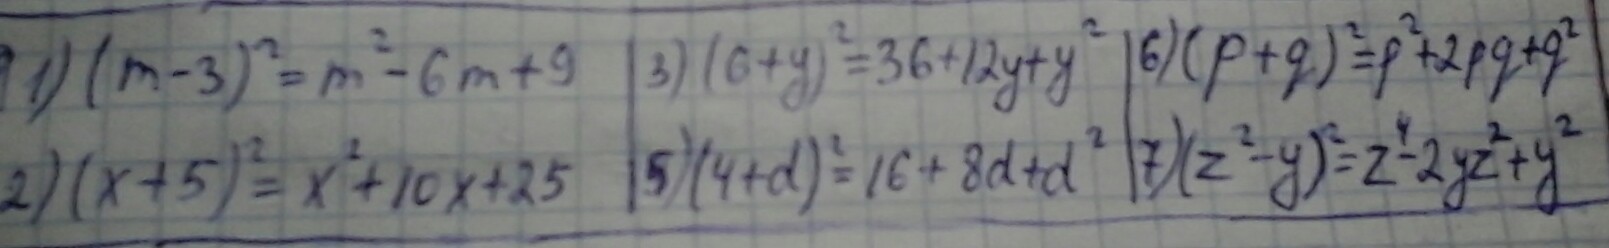 1) (m-3)²=m²-6m+9
2) (x+5)²=x²+10x+25
3) (6+y)²=36+12y+y²
5) (4+d)²=16+8d+d²
6) (p+q)²=p²+2pq+q²
7) (z²-y)²=z⁴-2yz²+y²